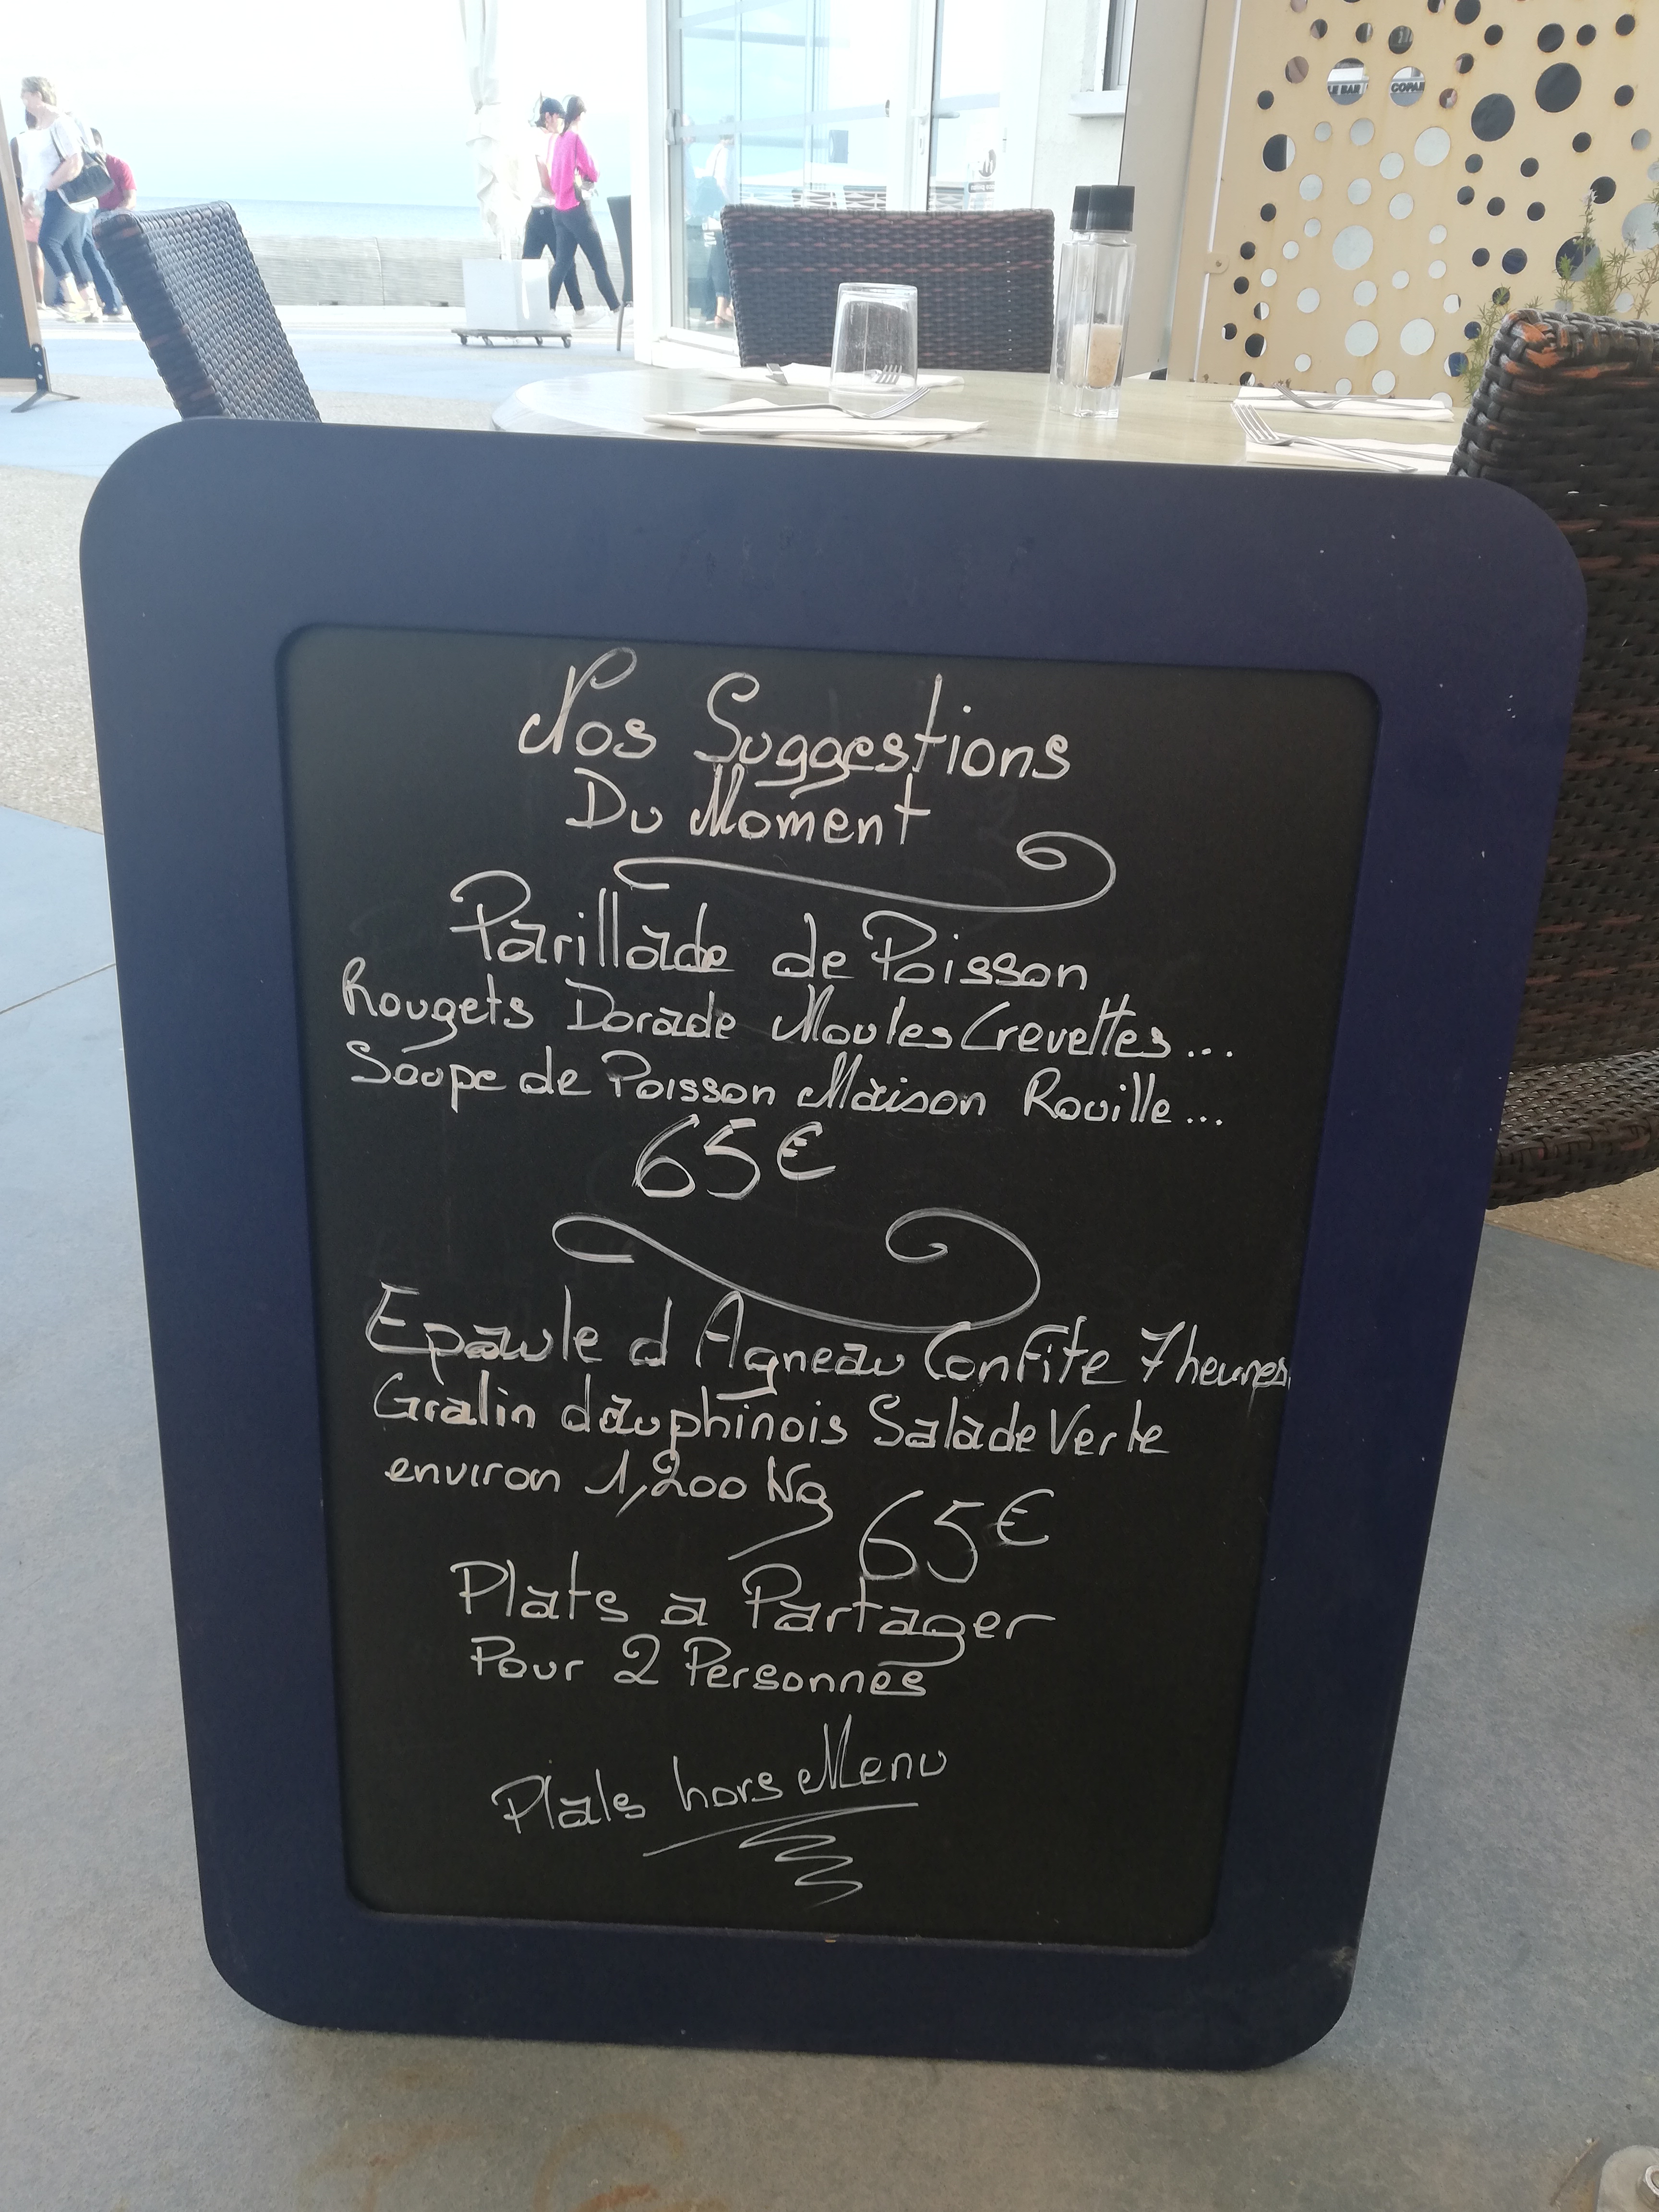 LE BAR
COPAI
Nos Suggestions
Du Moment
Parillade de Poisson
Rougets Dorade Moules Crevettes...
Soupe de Poisson Maison Rouille...
65€
Epaule d Agneau Confite 7heures
Gratin dauphinois Salade Verte
environ 1,200 Kg
65€
Plats a Partager
Pour 2 Personnes
Plats hors Menu